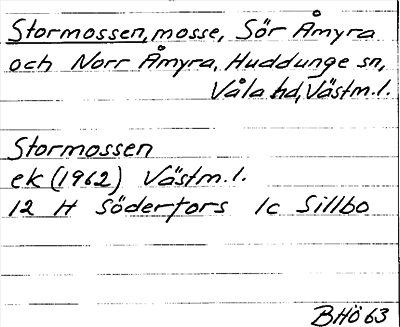 Stormossen, mosse, Sör Åmyra
och Norr Åmyra, Huddunge sn,
Våla hd, Västm. l.
Stormossen
ek (1962) Västm. l.
12 H Söderfors 1c Sillbo
BHÖ 63